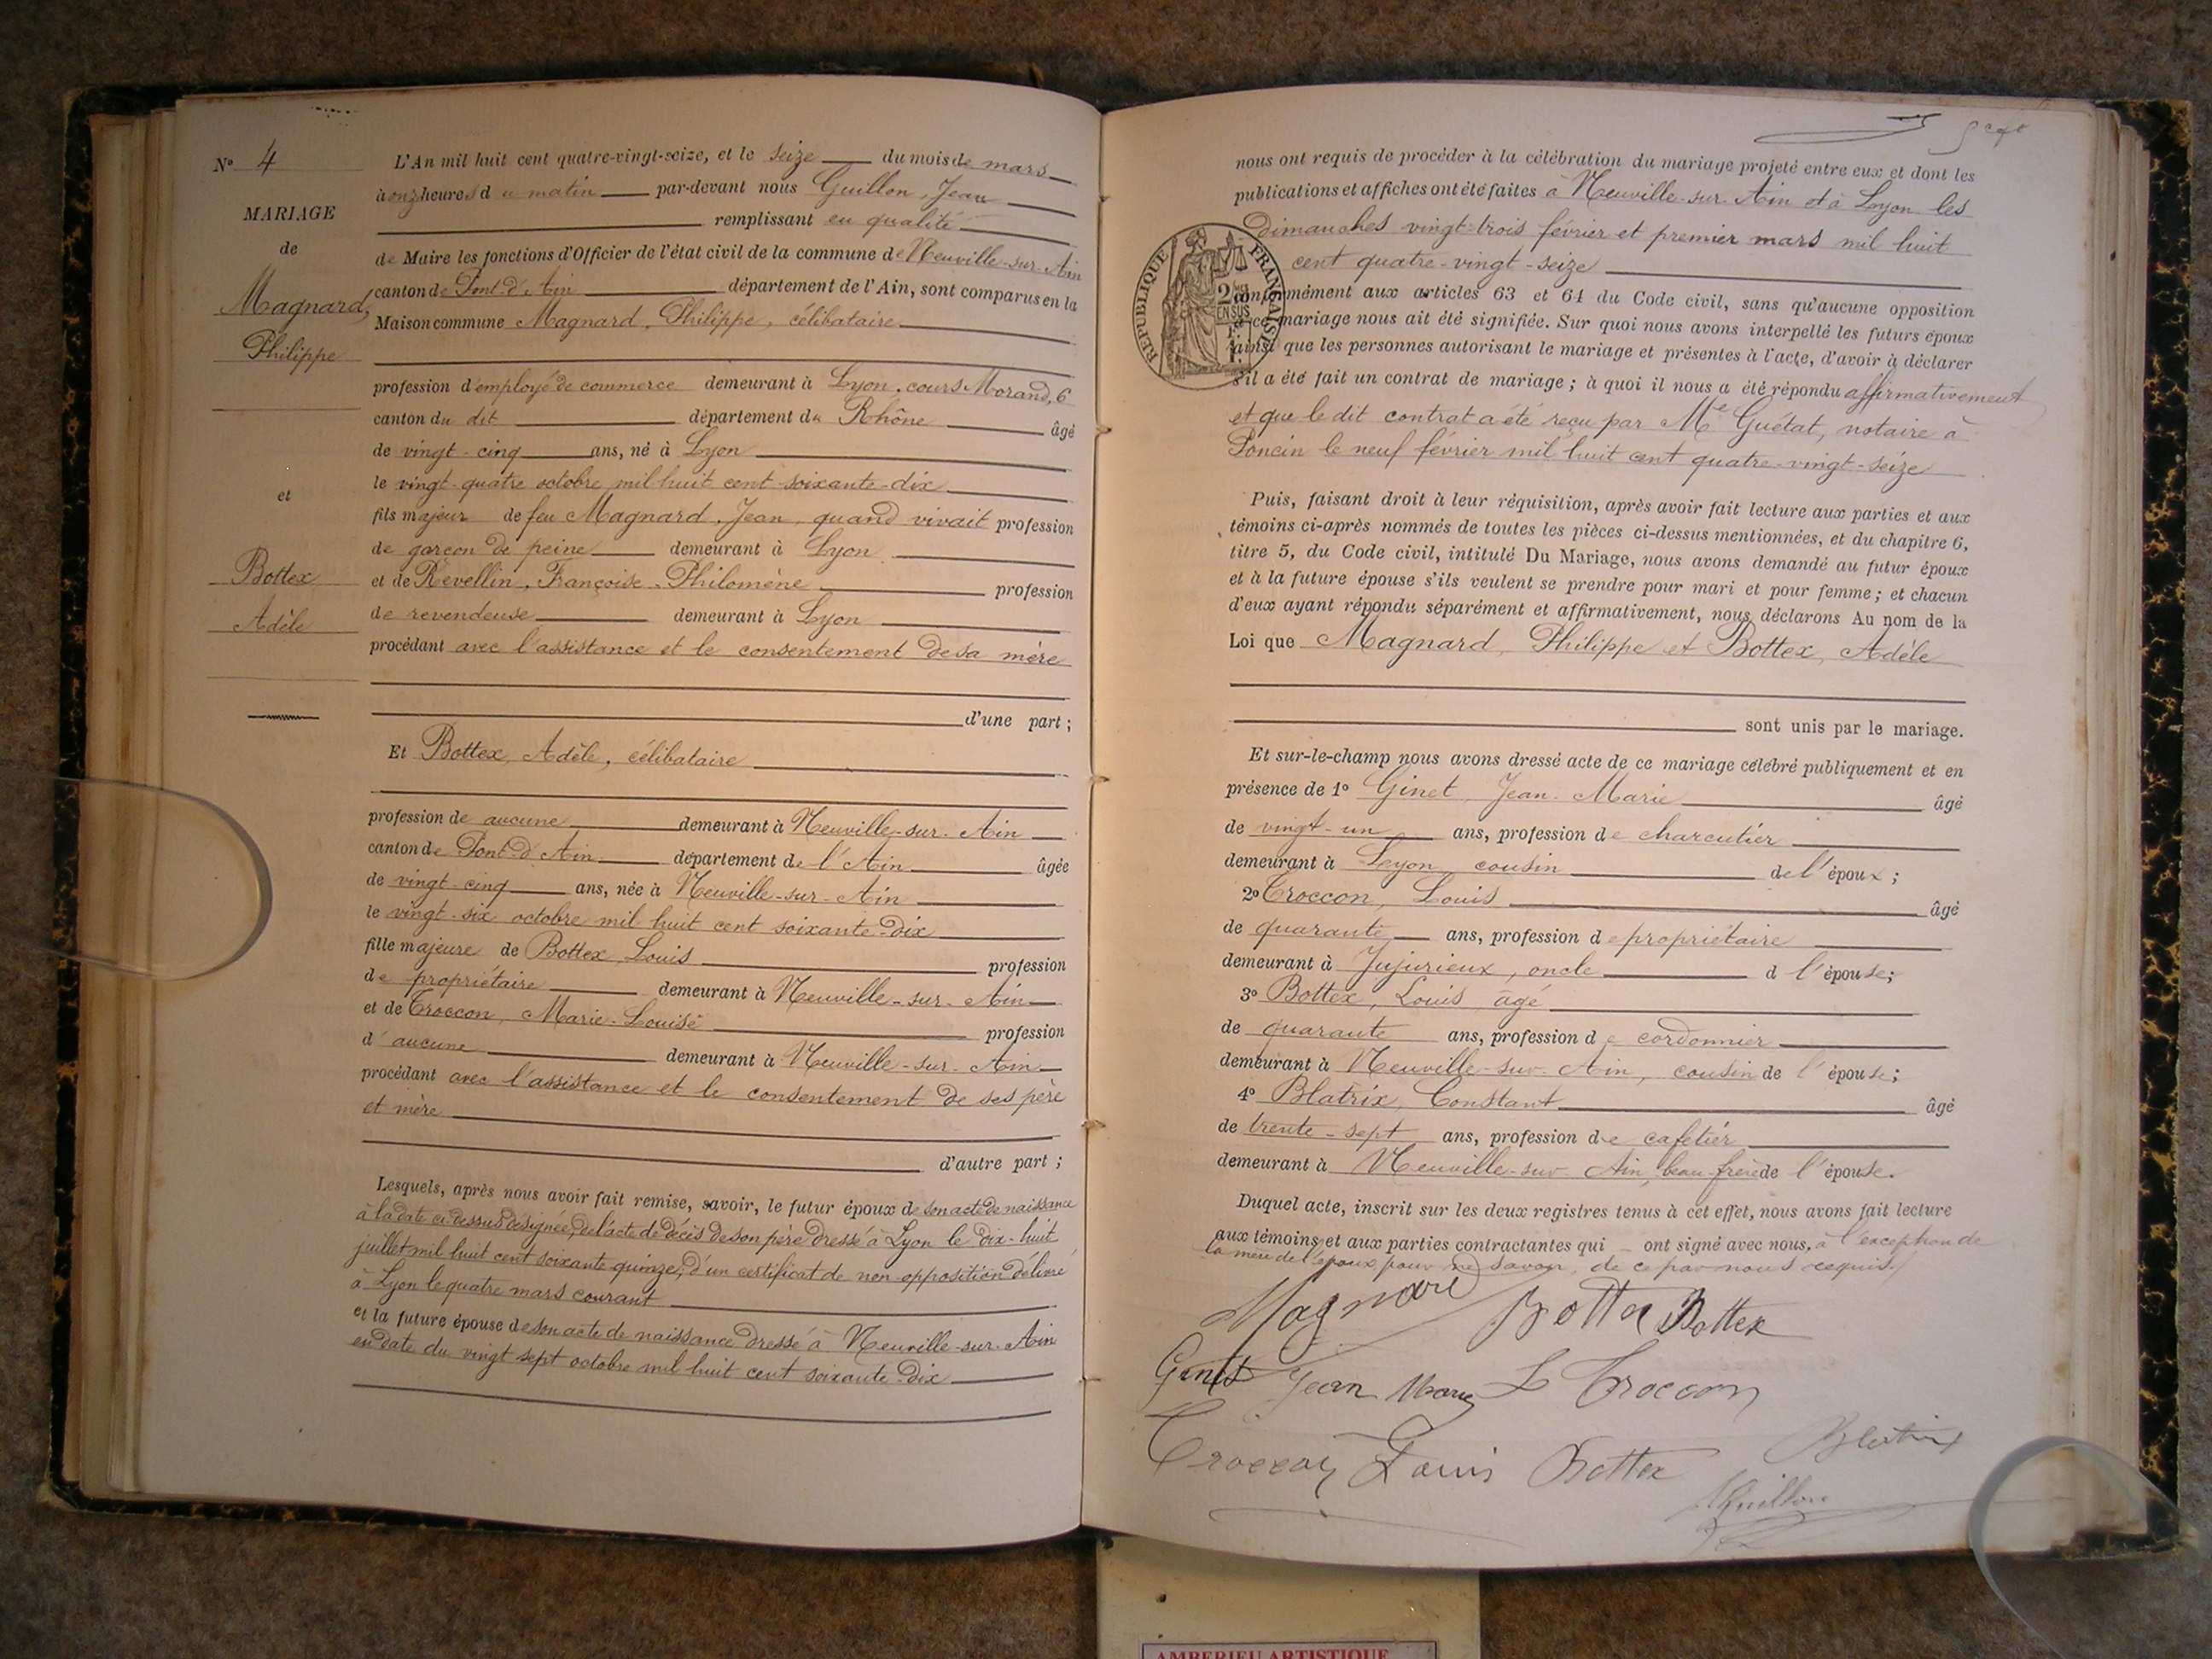 N° 4
MARIAGE
de
Magnard,
Philippe
et
Bottex
Adèle
L'An mil huit cent quatre-vingt-seize, et le seize du mois de mars
à onz heures du matin par-devant nous Guillon, Jean
remplissant en qualité
de Maire les fonctions d'Officier de l'état civil de la commune de Neuville-sur-Ain
canton de Pont-d'Ain département de l'Ain, sont comparus en la
Maison commune Magnard, Philippe, célibataire
profession d'employé de commerce demeurant à Lyon, cours Morand, 6
canton du dit département du Rhône âgé
de vingt-cinq ans, né à Lyon
le vingt-quatre octobre mil huit cent soixante-dix
fils majeur de feu Magnard, Jean, quand vivait profession
de garçon de peine demeurant à Lyon
et de Revellin, Françoise-Philomène profession
de revendeuse demeurant à Lyon
procédant avec l'assistance et le consentement de sa mère
d'une part ;
Et Bottex, Adèle, célibataire
profession de aucune demeurant à Neuville-sur-Ain
canton de Pont-d'Ain département de l'Ain âgée
de vingt-cinq ans, née à Neuville-sur-Ain
le vingt-six octobre mil huit cent soixante-dix
fille majeure de Bottex, Louis profession
de propriétaire demeurant à Neuville-sur-Ain
et de Troccon, Marie-Louise profession
d'aucune demeurant à Neuville-sur-Ain
procédant avec l'assistance et le consentement de ses père
et mère
d'autre part ;
Lesquels, après nous avoir fait remise, savoir, le futur époux de son acte de naissance
à la date ci-dessus désignée, de l'acte de décès de son père dressé à Lyon le dix-huit
juillet mil huit cent soixante-quinze, d'un certificat de non-opposition délivré
à Lyon le quatre mars courant
et la future épouse de son acte de naissance dressé à Neuville-sur-Ain
en date du vingt-sept octobre mil huit cent soixante-dix
nous ont requis de procéder à la célébration du mariage projeté entre eux et dont les
publications et affiches ont été faites à Neuville-sur-Ain et à Lyon les
dimanches vingt-trois février et premier mars mil huit
cent quatre-vingt-seize
RÉPUBLIQUE FRANÇAISE
EN SUS
conformément aux articles 63 et 64 du Code civil, sans qu'aucune opposition
à ce mariage nous ait été signifiée. Sur quoi nous avons interpellé les futurs époux
ainsi que les personnes autorisant le mariage et présentes à l'acte, d'avoir à déclarer
s'il a été fait un contrat de mariage ; à quoi il nous a été répondu affirmativement
et que le dit contrat a été reçu par Me Guétat, notaire à
Poncin le neuf février mil huit cent quatre-vingt-seize
Puis, faisant droit à leur réquisition, après avoir fait lecture aux parties et aux
témoins ci-après nommés de toutes les pièces ci-dessus mentionnées, et du chapitre 6,
titre 5, du Code civil, intitulé Du Mariage, nous avons demandé au futur époux
et à la future épouse s'ils veulent se prendre pour mari et pour femme ; et chacun
d'eux ayant répondu séparément et affirmativement, nous déclarons Au nom de la
Loi que Magnard, Philippe et Bottex, Adèle
sont unis par le mariage.
Et sur-le-champ nous avons dressé acte de ce mariage célébré publiquement et en
présence de 1° Ginet, Jean-Marie âgé
de vingt-un ans, profession de charcutier
demeurant à Lyon, cousin de l'époux ;
2° Troccon, Louis âgé
de quarante ans, profession de propriétaire
demeurant à Jujurieux, oncle d l'épouse ;
3° Bottex, Louis âgé
de quarante ans, profession de cordonnier
demeurant à Neuville-sur-Ain, cousin de l'épouse ;
4° Blatrix, Constant âgé
de trente-sept ans, profession de cafetier
demeurant à Neuville-sur-Ain, beau-frère de l'épouse.
Duquel acte, inscrit sur les deux registres tenus à cet effet, nous avons fait lecture
aux témoins et aux parties contractantes qui ont signé avec nous, à l'exception de
la mère de l'époux pour ne savoir, de ce par nous requis.
Magnard Bottex Bottex
Ginet Jean Marie L Troccon
Troccon Louis Bottex Blatrix
Guillon
AMBERIEU ARTISTIQUE